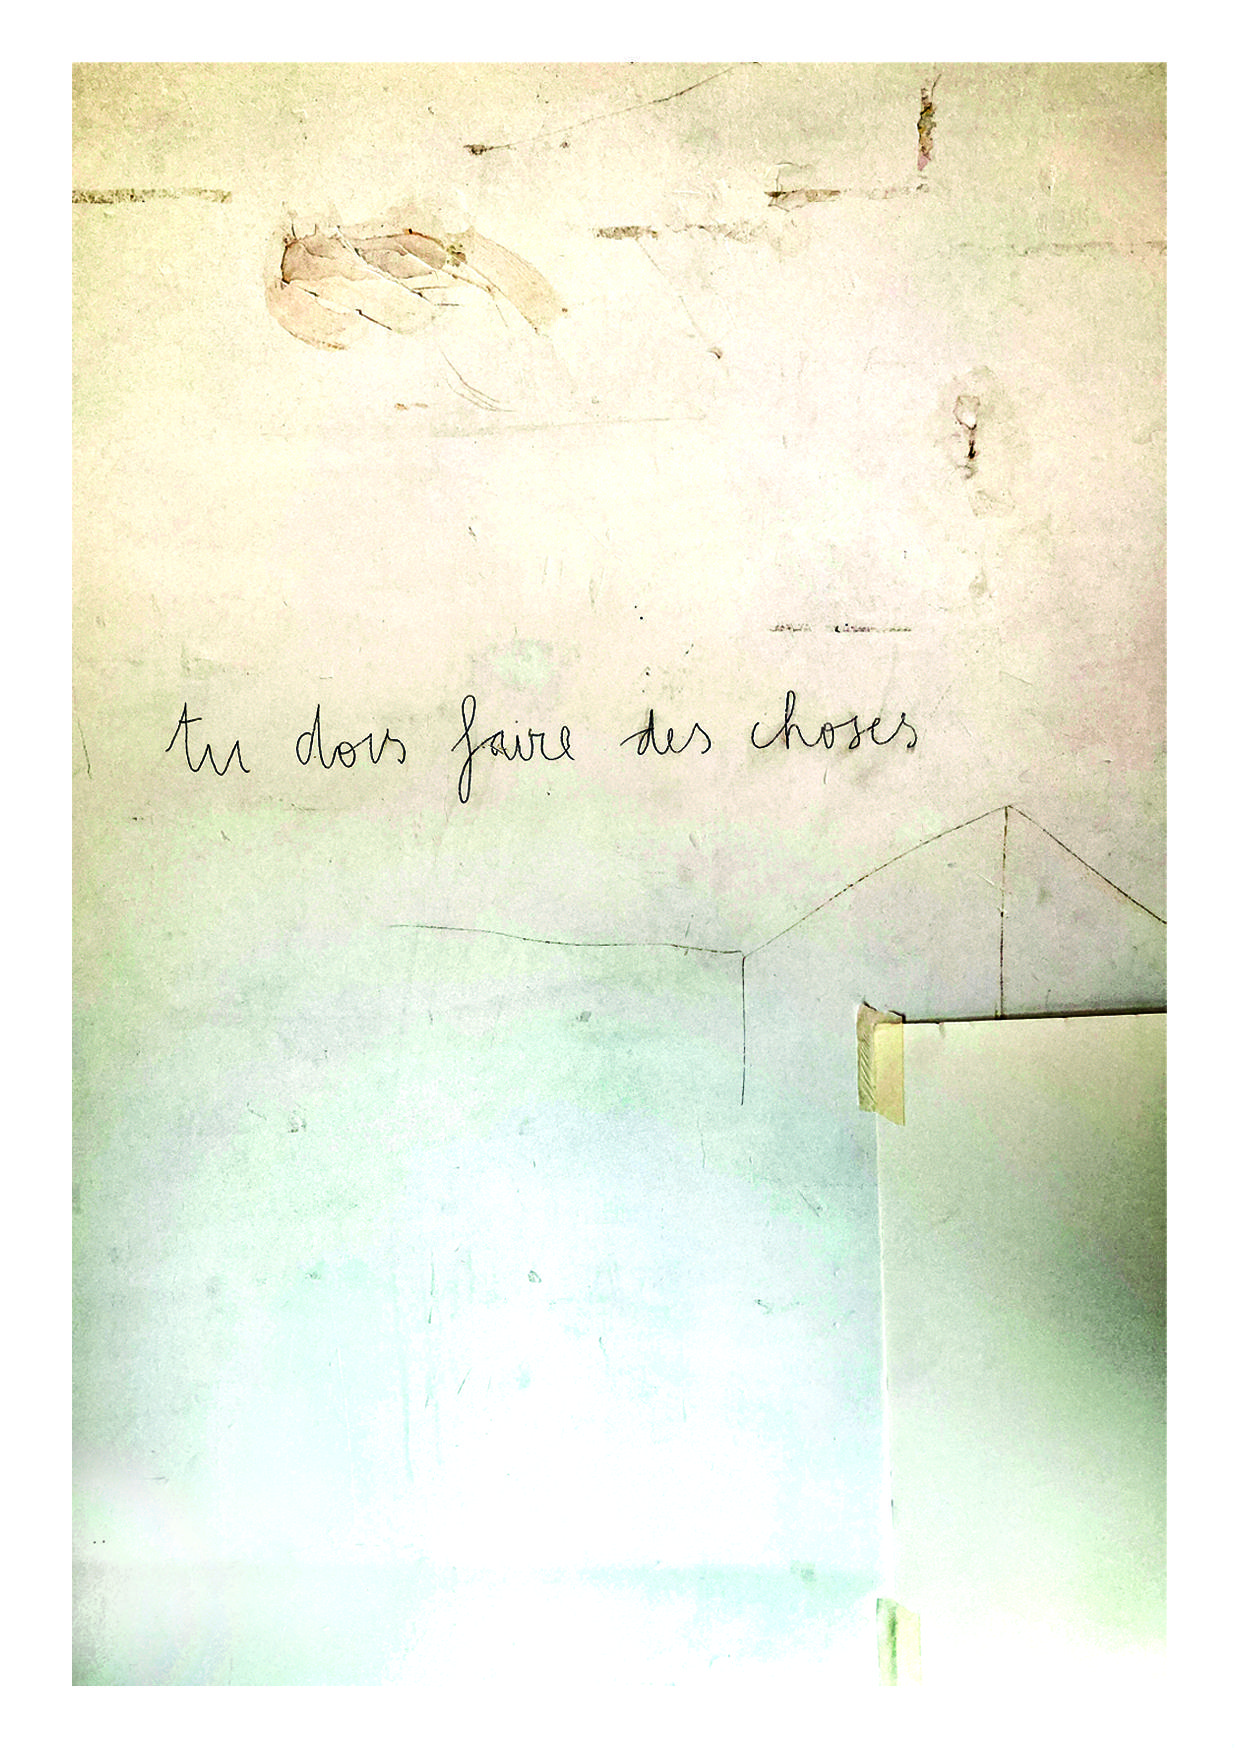 tu dois faire des choses